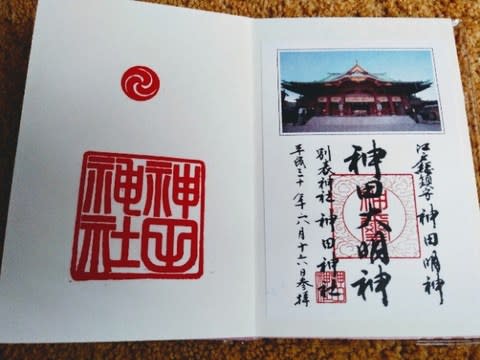 江戸総鎮守 神田明神
神田大明神
別表神社 神田神社
平成三十年六月十六日参拝
神田
神社